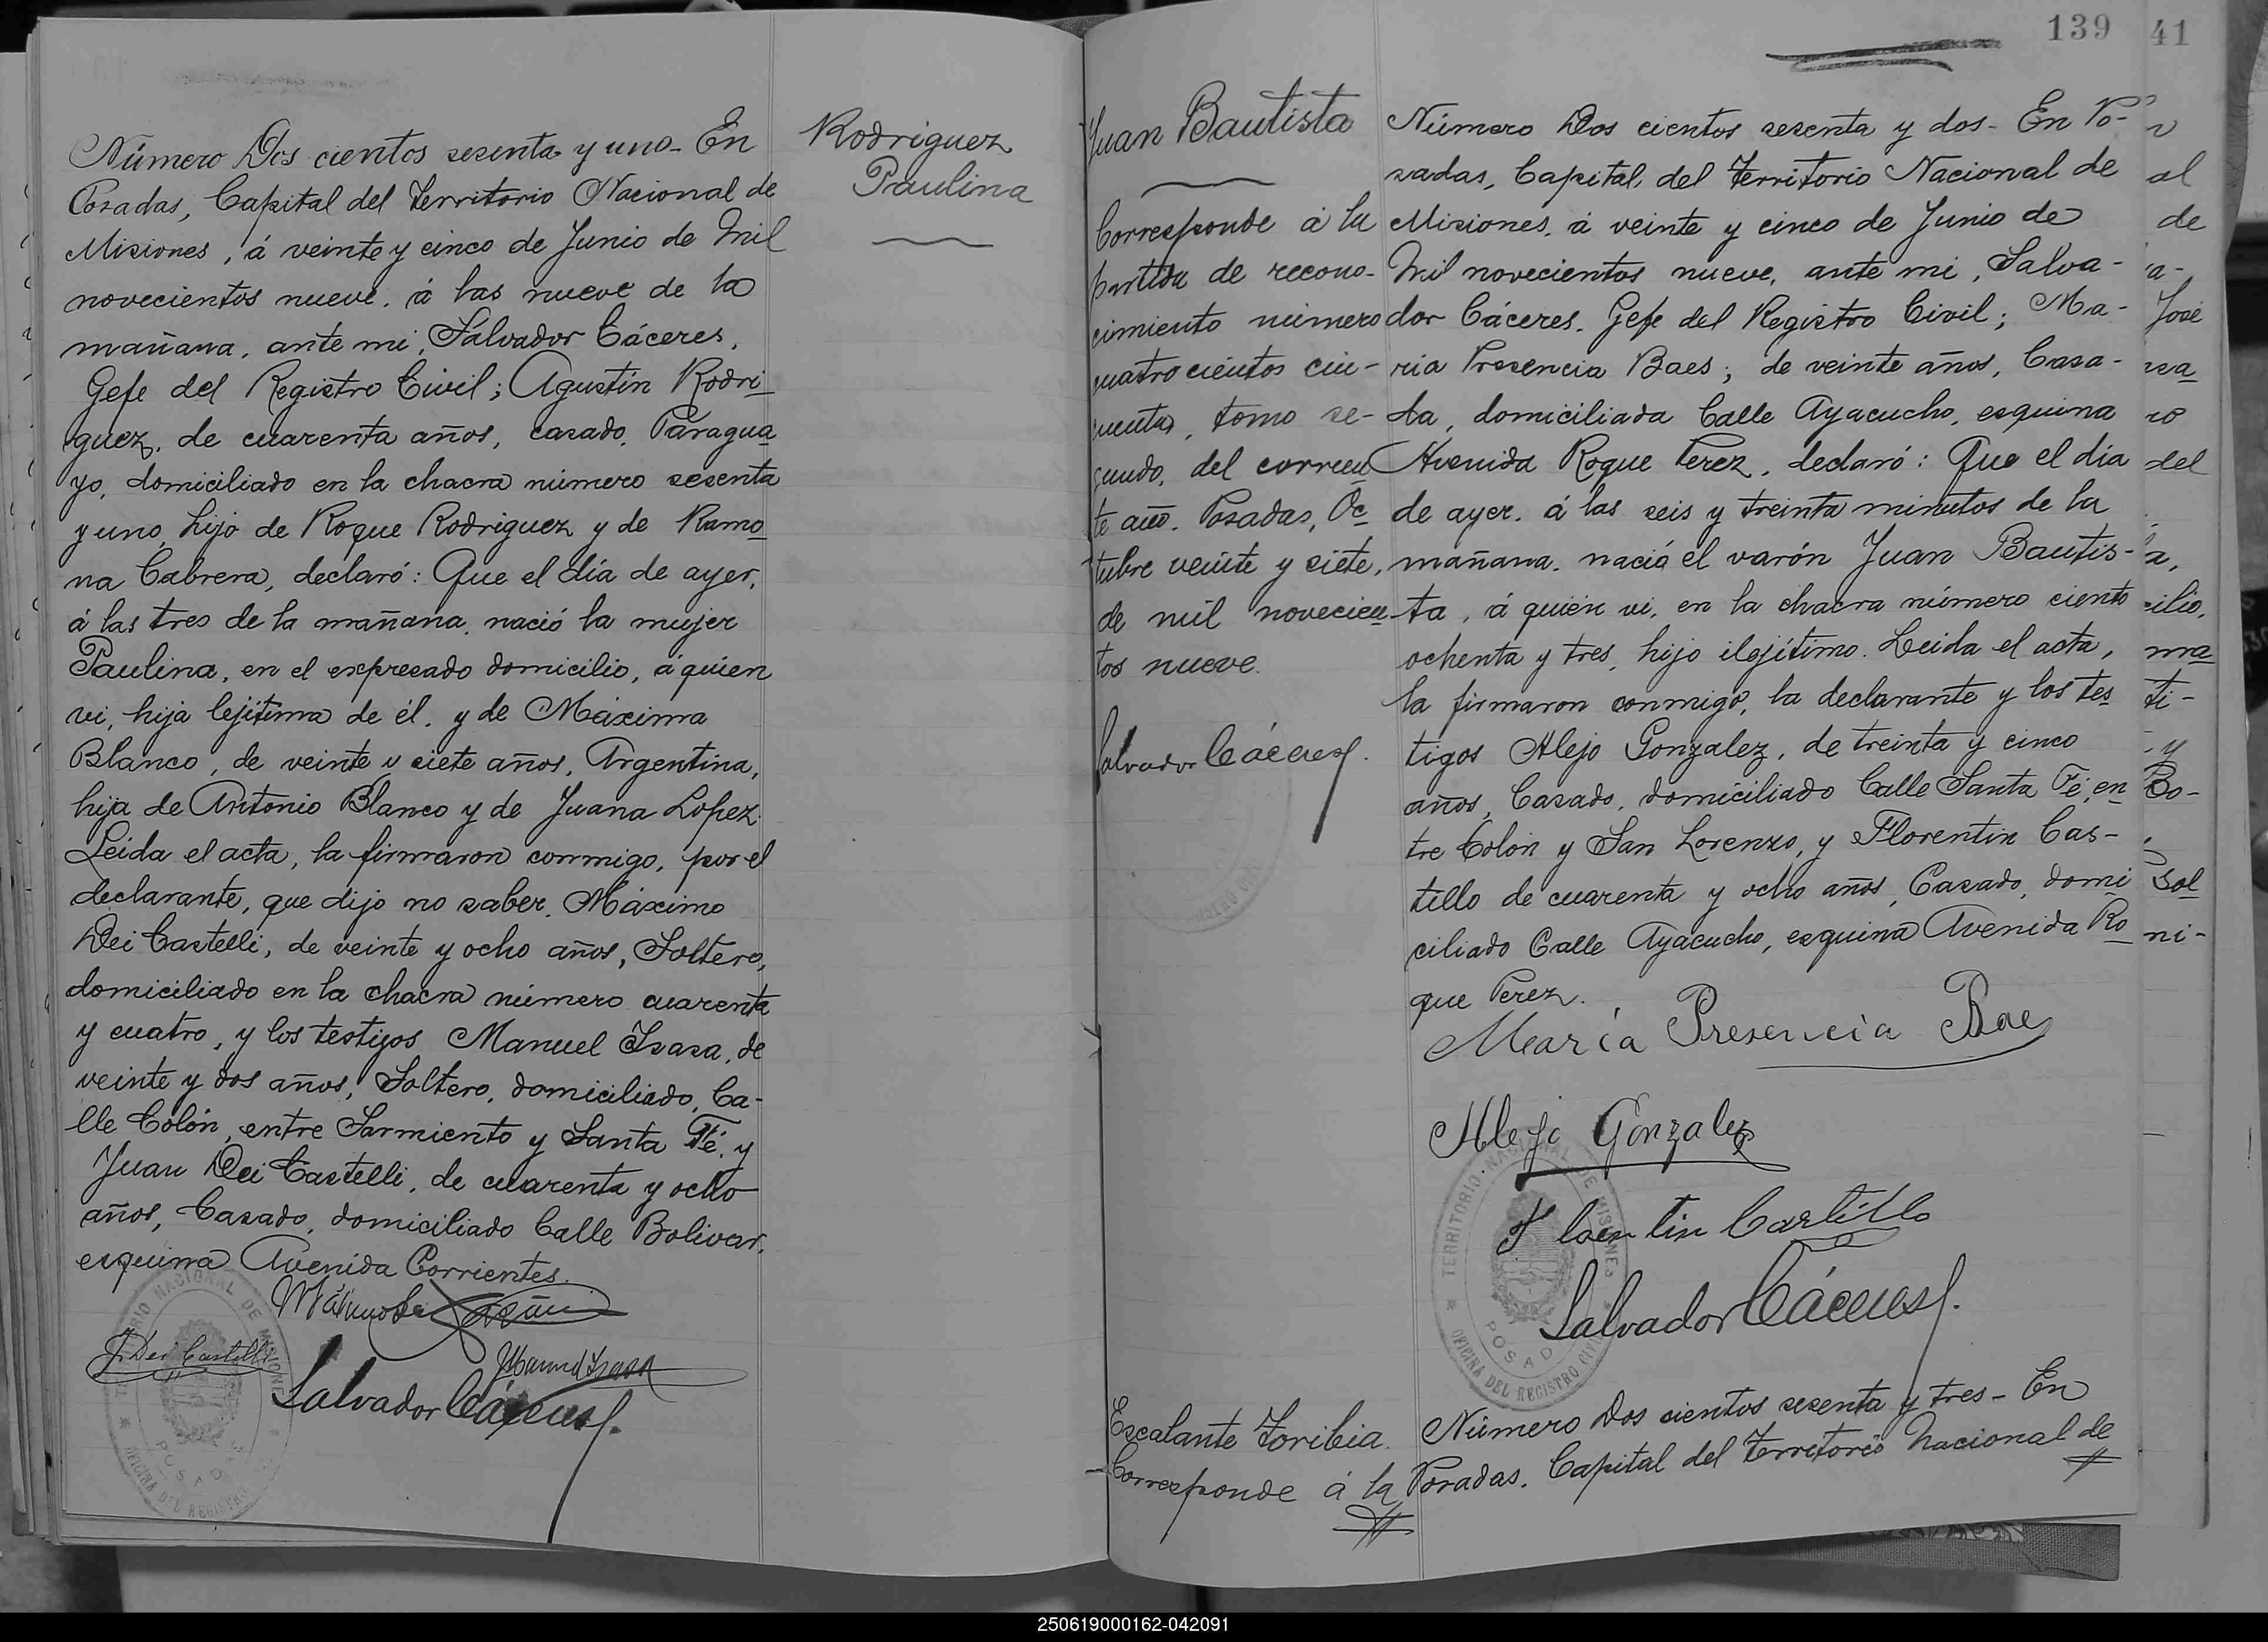 Número Dos cientos sesenta y uno - En
Posadas, Capital del Territorio Nacional de
Misiones, á veinte y cinco de Junio de Mil
novecientos nueve, á las nueve de la
mañana, ante mi, Salvador Cáceres,
Gefe del Registro Civil; Agustín Rodri
guez, de cuarenta años, casado, Paragua
yo, domiciliado en la chacra número sesenta
y uno, hijo de Roque Rodriguez y de Ramo
na Cabrera, declaró: Que el día de ayer,
á las tres de la mañana, nació la mujer
Paulina, en el expresado domicilio, á quien
vi, hija lejítima de él, y de Máxima
Blanco, de veinte y siete años, Argentina,
hija de Antonio Blanco y de Juana Lopez.
Leida el acta, la firmaron conmigo, por el
declarante, que dijo no saber, Máximo
Dei Castelli, de veinte y ocho años, Soltero,
domiciliado en la chacra número cuarenta
y cuatro, y los testigos Manuel Isasa, de
veinte y dos años, Soltero, domiciliado, Ca-
lle Colón, entre Sarmiento y Santa Fé, y
Juan Dei Castelli, de cuarenta y ocho
años, Casado, domiciliado Calle Bolivar,
esquina Avenida Corrientes.
J. Dei Castelli
Manuel Isasa
Salvador Cáceres
TERRITORIO NACIONAL DE MISIONES
POSADAS
OFICINA DEL REGISTRO CIVIL
Rodriguez
Paulina
139
41
Juan Bautista
Corresponde á la
partida de recono-
cimiento número
cuatrocientos cin-
cuenta, tomo se-
gundo, del corrien
te año. Posadas, Oc
tubre veinte y siete,
de mil novecien
tos nueve.
Salvador Cáceres
Número Dos cientos sesenta y dos - En Po-
sadas, Capital del Territorio Nacional de
Misiones, á veinte y cinco de Junio de
Mil novecientos nueve, ante mi, Salva-
dor Cáceres, Gefe del Registro Civil; Ma-
ria Presencia Baes; de veinte años, Casa-
da, domiciliada Calle Ayacucho, esquina
Avenida Roque Perez, declaró: Que el día
de ayer, á las seis y treinta minutos de la
mañana, nació el varón Juan Bautis-
ta, á quién vi, en la chacra número ciento
ochenta y tres, hijo ilejítimo. Leida el acta,
la firmaron conmigo, la declarante y los tes
tigos Alejo Gonzalez, de treinta y cinco
años, Casado, domiciliado Calle Santa Fé, en
tre Colón y San Lorenzo, y Florentin Cas-
tillo de cuarenta y ocho años, Casado, domi
ciliado Calle Ayacucho, esquina Avenida Ro
que Perez.
María Presencia Baes
Alejo Gonzalez
Florentin Castillo
Salvador Cáceres
TERRITORIO NACIONAL DE MISIONES
POSADAS
OFICINA DEL REGISTRO CIVIL
Escalante Toribia
Corresponde á la
Número Dos cientos sesenta y tres - En
Posadas, Capital del Territorio Nacional de
al
de
José
del
250619000162-042091